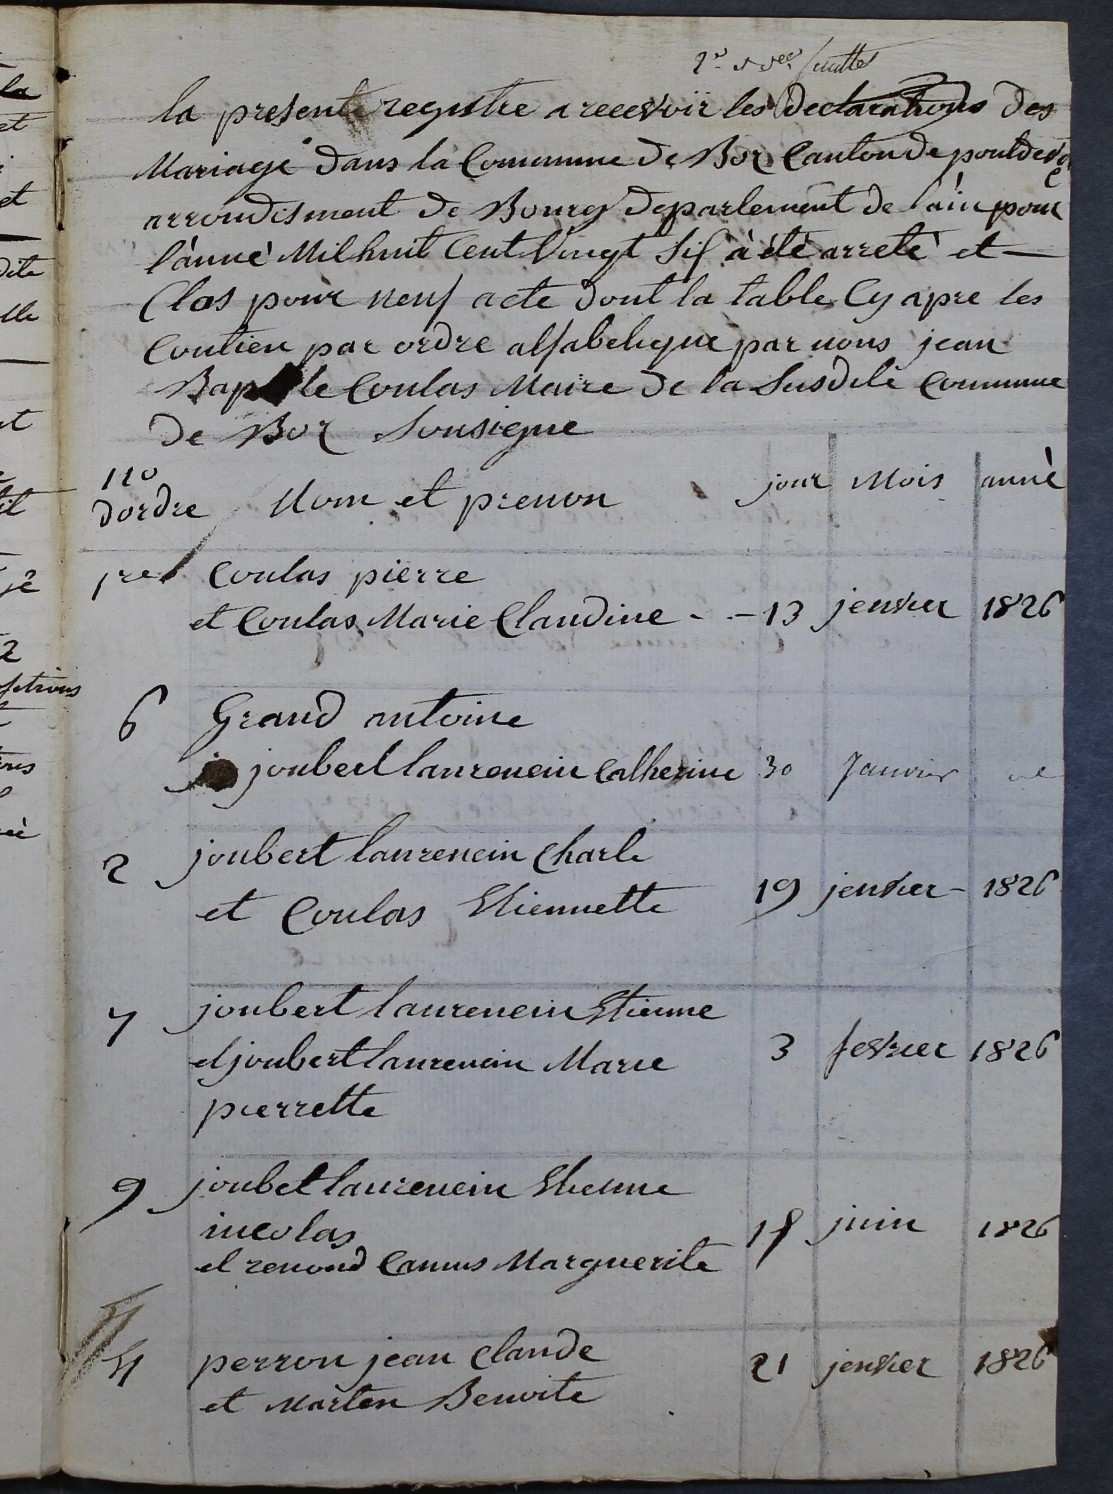 feuillet
la present registre a recevoir les declarations des
Mariage dans la Commune de Boz Canton de pontdev
arrondisment de Bourg departement de l'ain pour
l'anné Mil huit Cent Vingt Sif à été arreté et —
Clos pour neuf acte dont la table Cy apre les
Contien par ordre alfabetique par nous jean
Baptiste Coulas Maire de la Susdite Commune
de Boz Sousigne
no d'ordre Nom et prenon jour Mois anné
1re Coulas pierre
et Coulas Marie Claudine - - 13 jenvier 1826
6 Grand antoine
joubert laurencin Catherine 30 Janvier
2 joubert laurencin Charle
et Coulas Etiennette 19 jenvier - 1826
7 joubert laurencin Etienne
et joubert laurencin Marie 3 fevrier 1826
pierrette
9 joubet laurencin Etienne
nicolas juin 1826
et renoud Camus Marguerite
4 perron jean Claude 21 jenvier 1826
et Marten Benoite